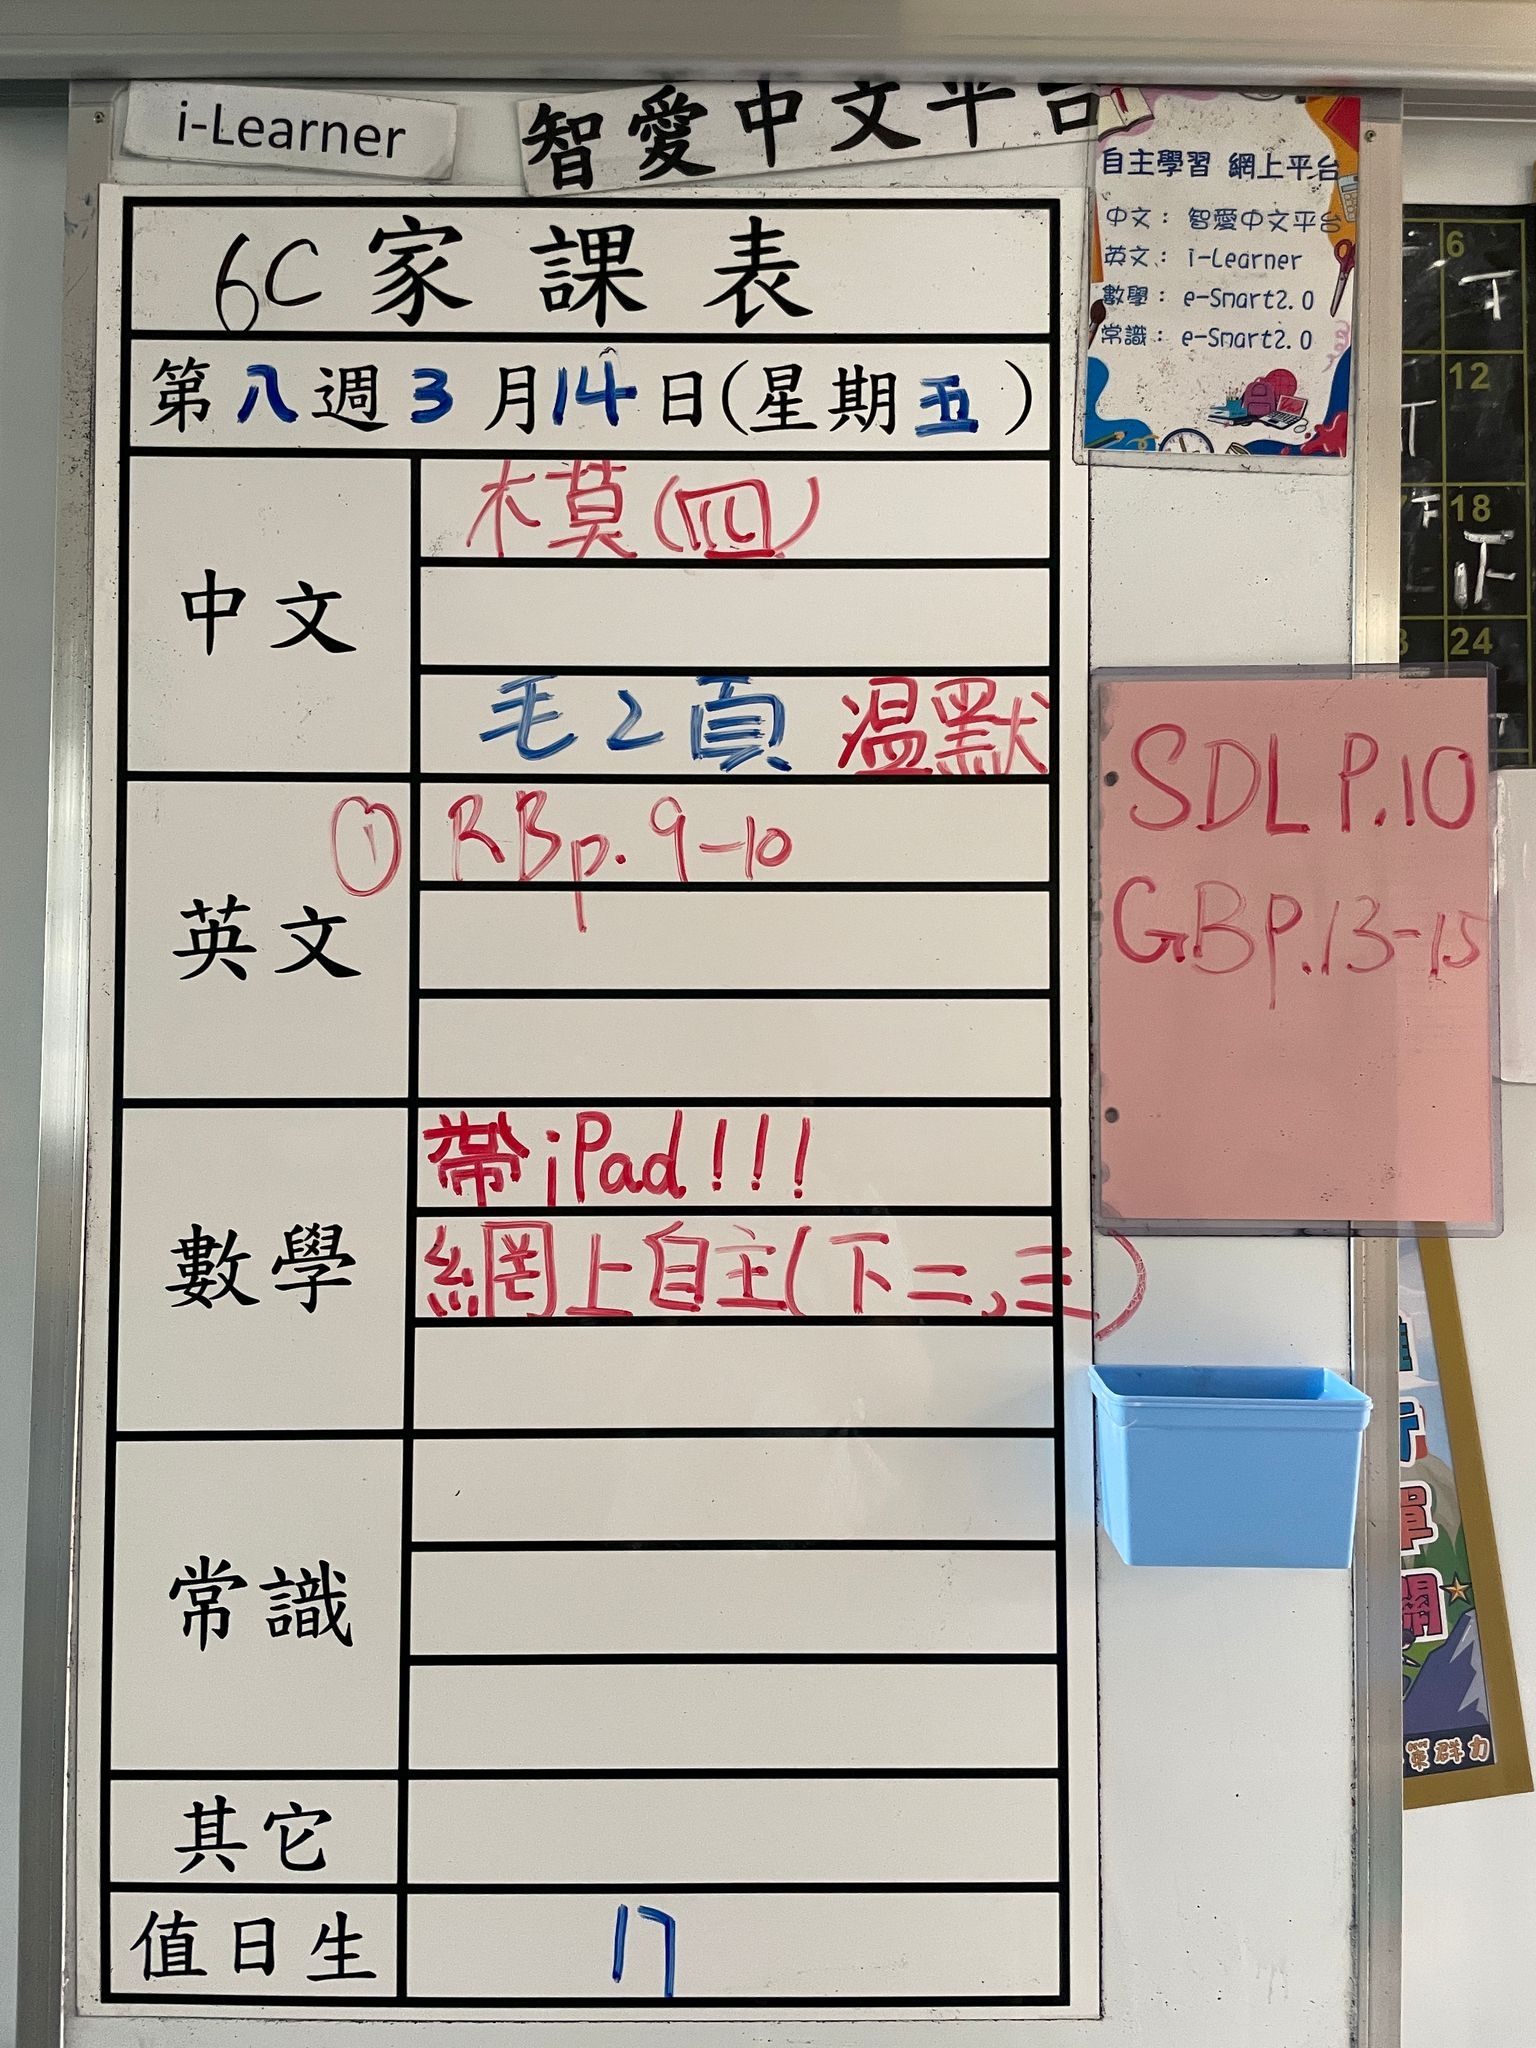 i-Learner
智愛中文平台
自主學習 網上平台
中文： 智愛中文平台
英文： i-Learner
數學： e-Smart2.0
常識： e-Smart2.0
6C 家課表
第八週3月14日(星期五)
中文
模(四)
毛2頁 温默
英文
① RB p. 9-10
數學
帶iPad!!!
網上自主(下二,三)
常識
其它
值日生
17
SDL P.10
GB P.13-15
6
下
12
18
下
24
單
關
群力